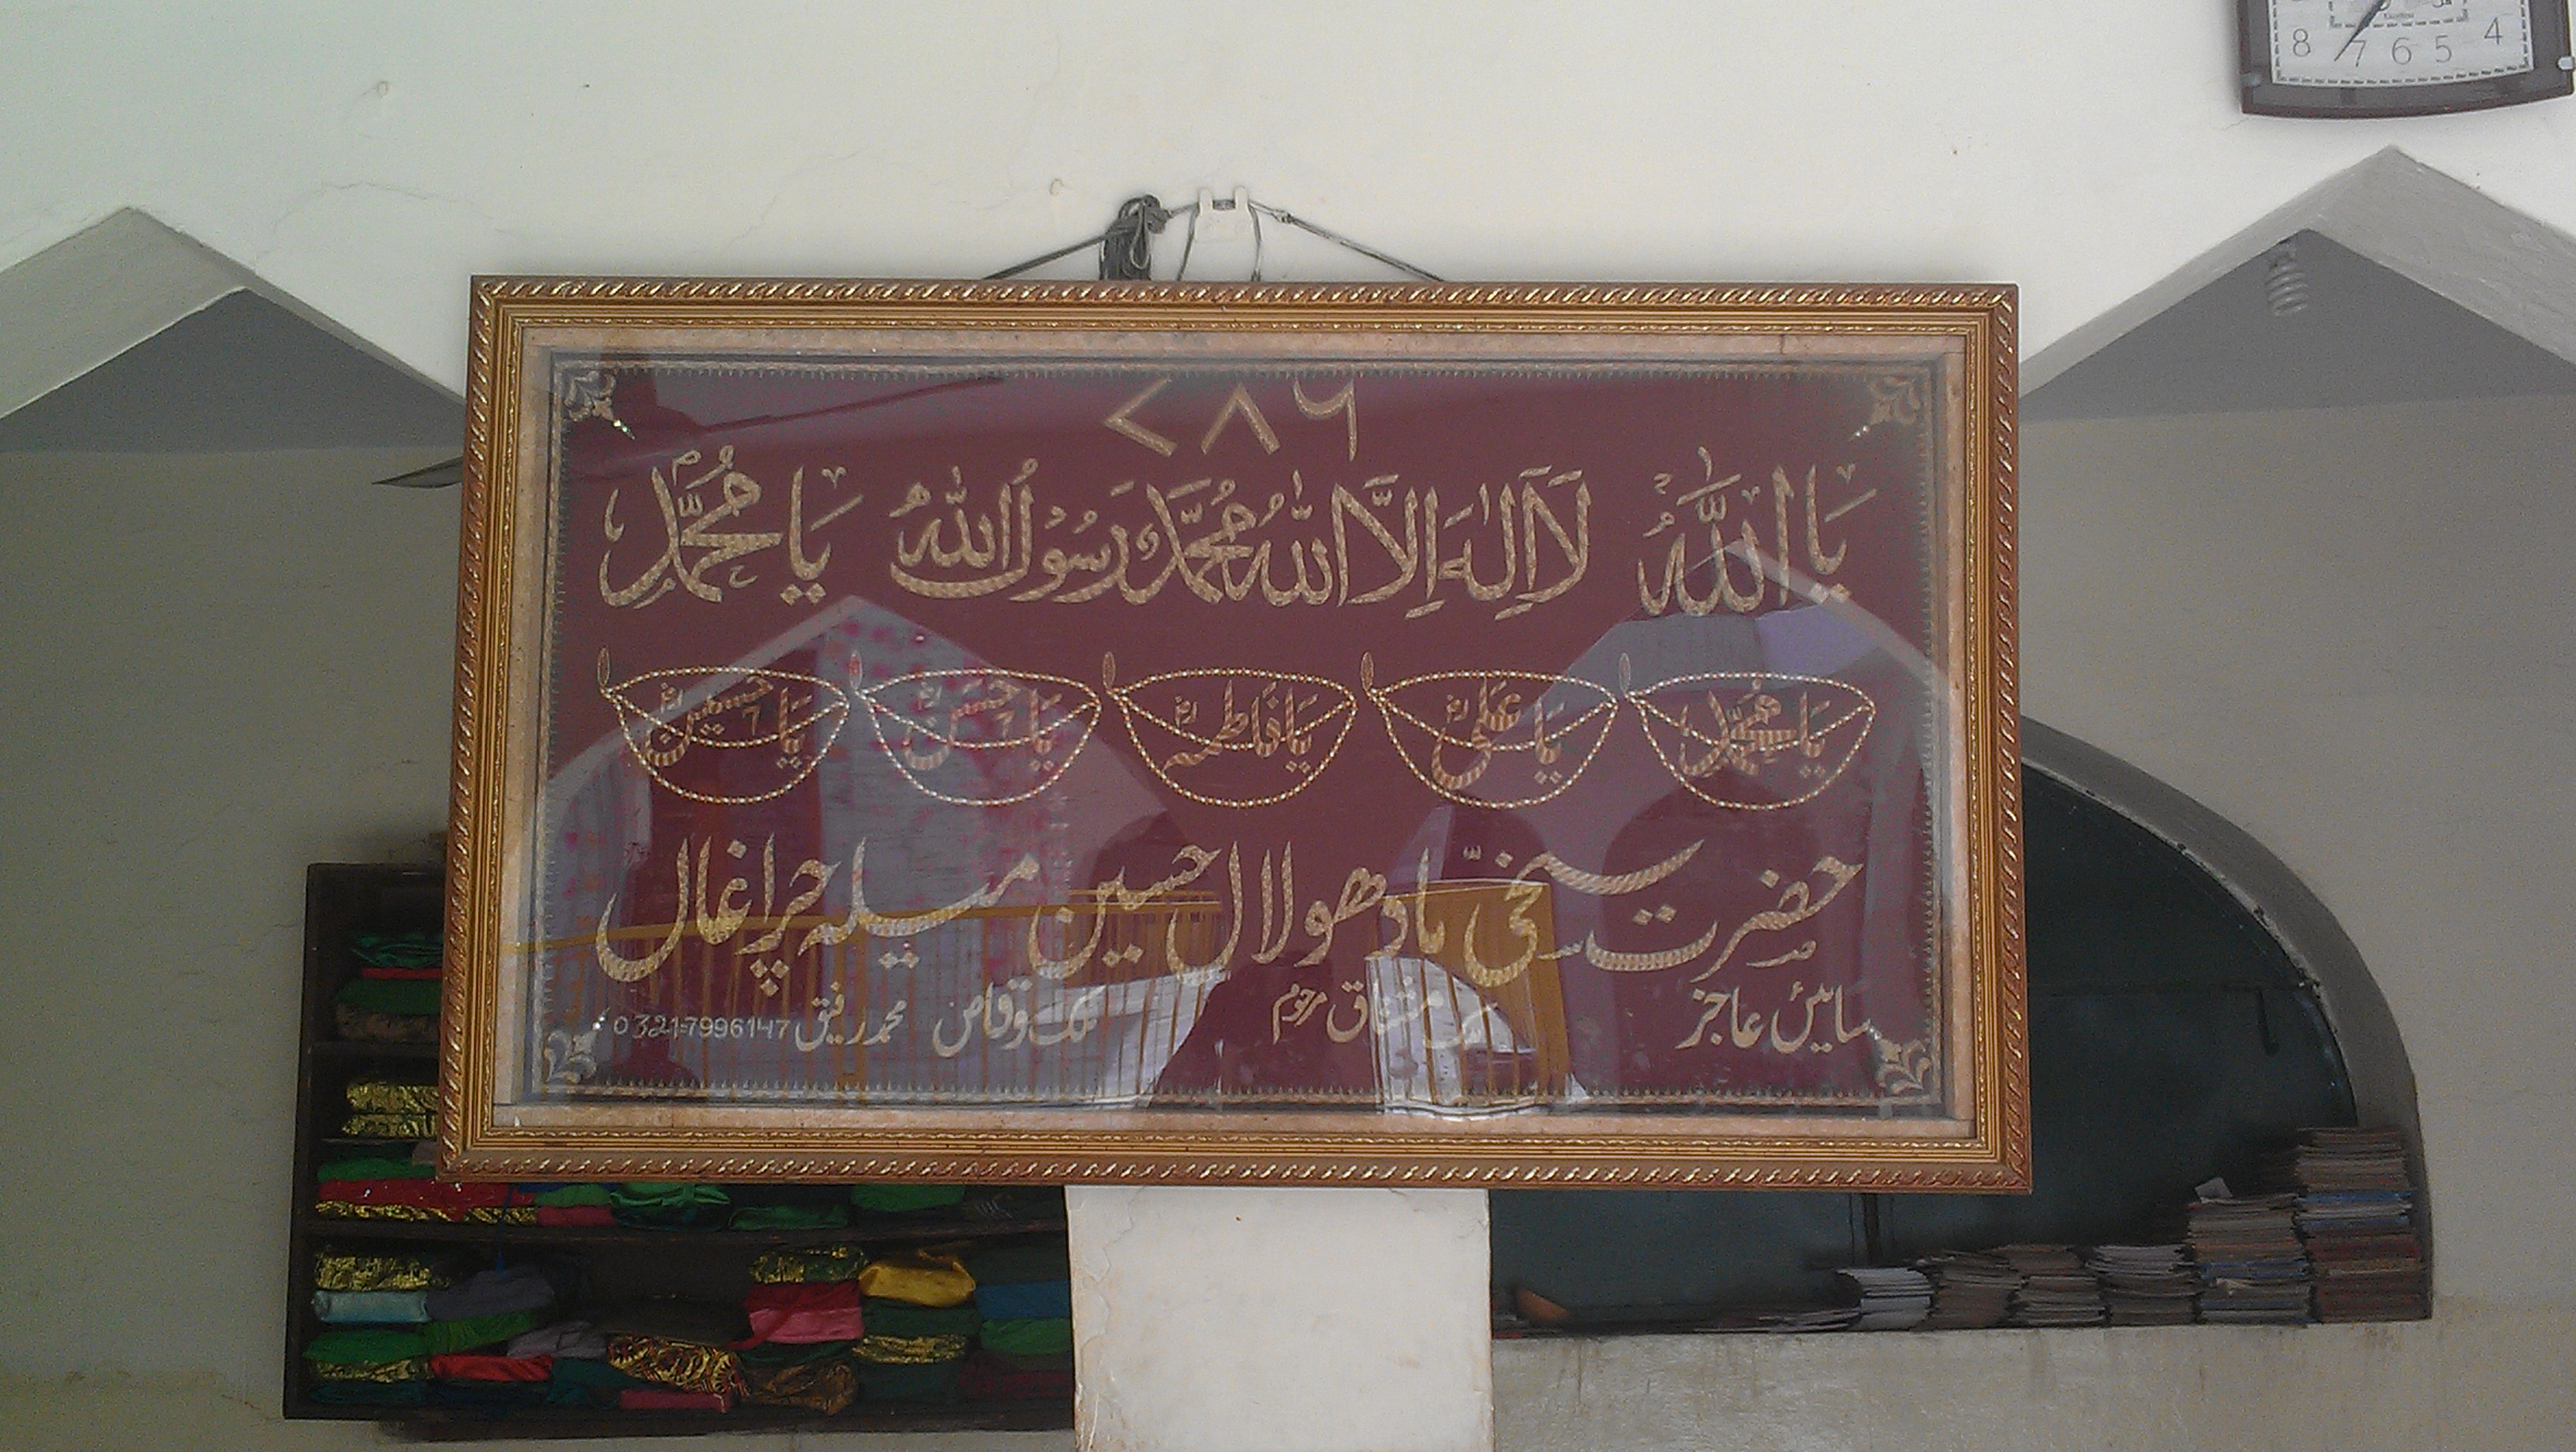 8 7 6 5 4
۷۸۶
یا اللہُ لَا اِلٰہَ اِلَّا اللہُ مُحَمَّدٌ رَسُوْلُ اللہُ یا مُحَمَّدٌ
یا محمدؐ یا علیؓ یا فاطمہؓ یا حسنؓ یا حسینؓ
حضرت سخی مادھو لال حسین میلہ چراغاں
سائیں عاجز ملک مشتاق مرحوم ملک وقاص محمد رفیق 0321-7996147